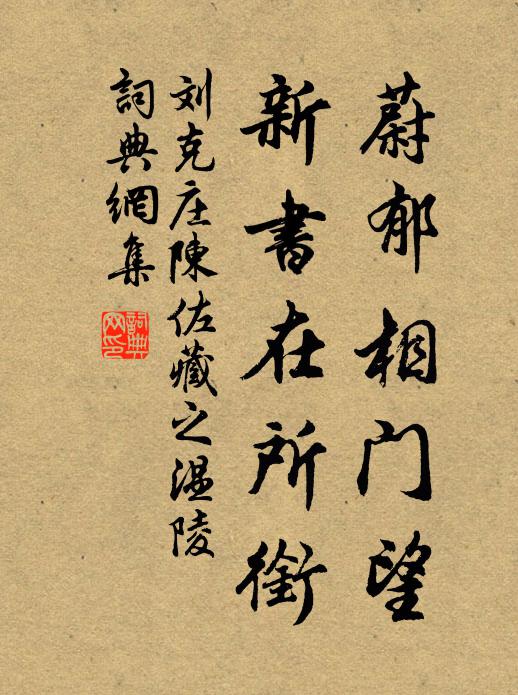 蔚郁相门望
新書在所銜
刘克庄陳佐藏之温陵
詞典網集
詞典
网印